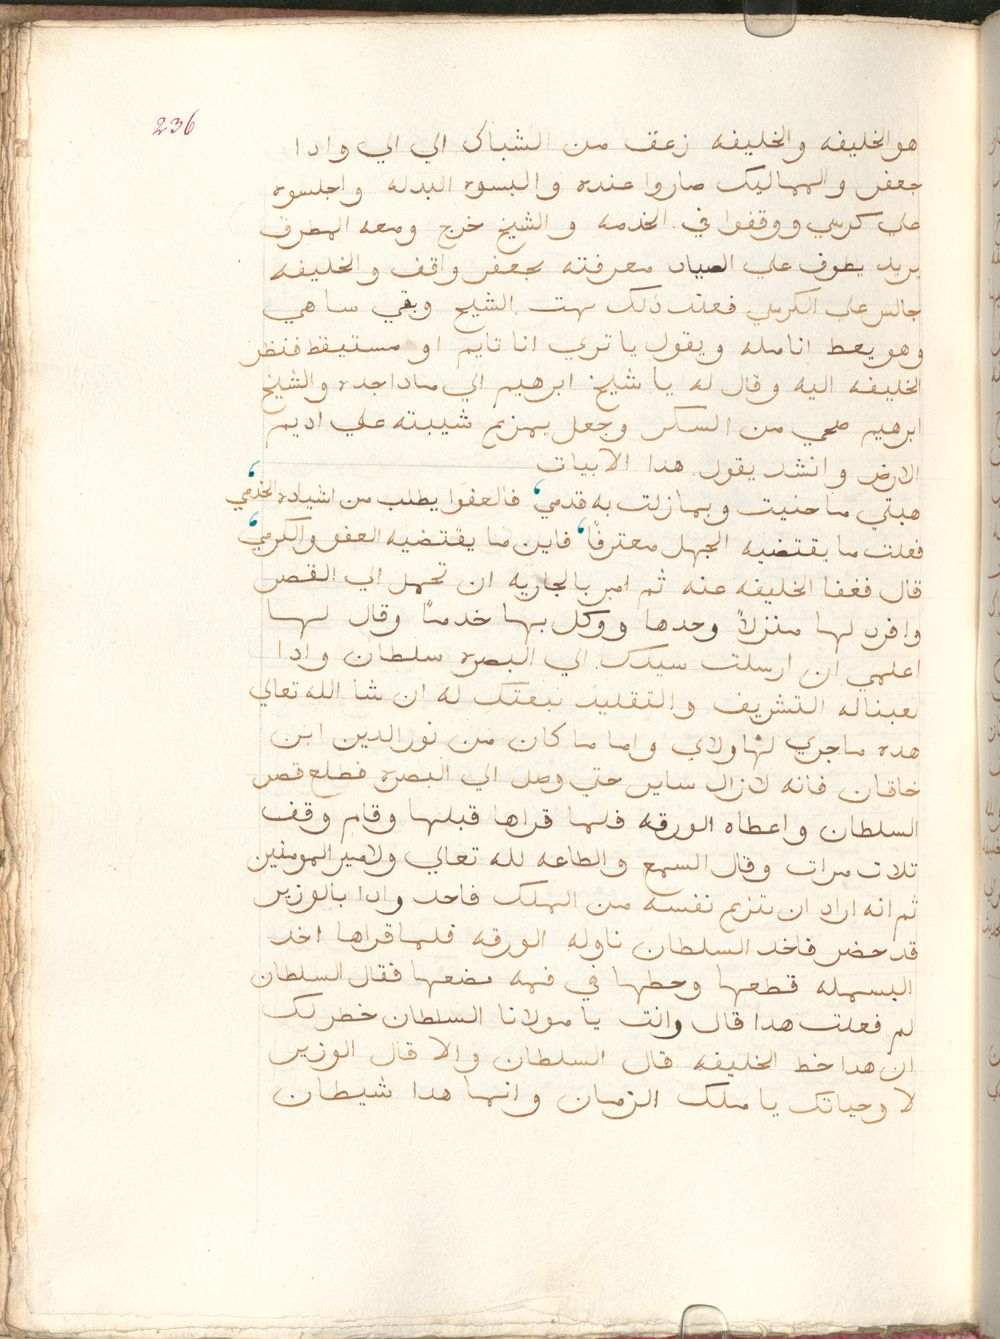 236
هو الخليفه والخليفه زعق من الشباك الي الي وادا
جعفر والمماليك صاروا عنده والبسوه البدله واجلسوه
علي كرسي ووقفوا في الخدمه والشيخ خرج ومعه المطرق
يريد يطوف علي الصياد معرفته بجعفر واقف والخليفه
جالس علي الكرسي فعند دلك بهت الشيخ وبقي ساهي
وهو يعط انامله ويقول يا تري انا نايم او مستيقط فنظر
الخليفه اليه وقال له يا شيخ ابرهيم الي مادا جده والشيخ
ابرهيم صحي من السكر وجعل يمزيع شيبته علي اديم
الارض وانشد يقول هدا الابيات
هبتي ما جنيت وبما زلت به قدمي فالعفوا يطلب من اشياده الخدمي
فعلت ما يقتضيه الجهل معترفًا فاين ما يقتضيه العفو والكرمي
قال فعفا الخليفه عنه ثم امر بالجاريه ان تحمل الي القصر
وافرد لها منزلاً وحدها ووكل بها خدمًا وقال لها
اعلمي ان ارسلت سيدك الي البصره سلطان وادا
بعبناله التشريف والتقليد نبعتك له ان شا الله تعالي
هده ماجري لهاولاي واما ما كان من نور الدين ابن
خاقان فانه لازال ساير حتي وصل الي البصره فطلع قصر
السلطان واعطاه الورقه فلما قراها قبلها وقام وقف
تلات مرات وقال السمع والطاعه لله تعالي ولامير المومنين
ثم انه اراد ان يتزيع نفسه من الملك فاحد وادا بالوزير
قد حضر فاخد السلطان ناوله الورقه فلما قراها اخد
البسمله قطعها وحطها في فمه مضعها فقال السلطان
لم فعلت هدا قال وانت يا مولانا السلطان خطر لك
ان هدا خط الخليفه قال السلطان والا قال الوزير
لا وحياتك يا ملك الزمان وانما هدا شيطان